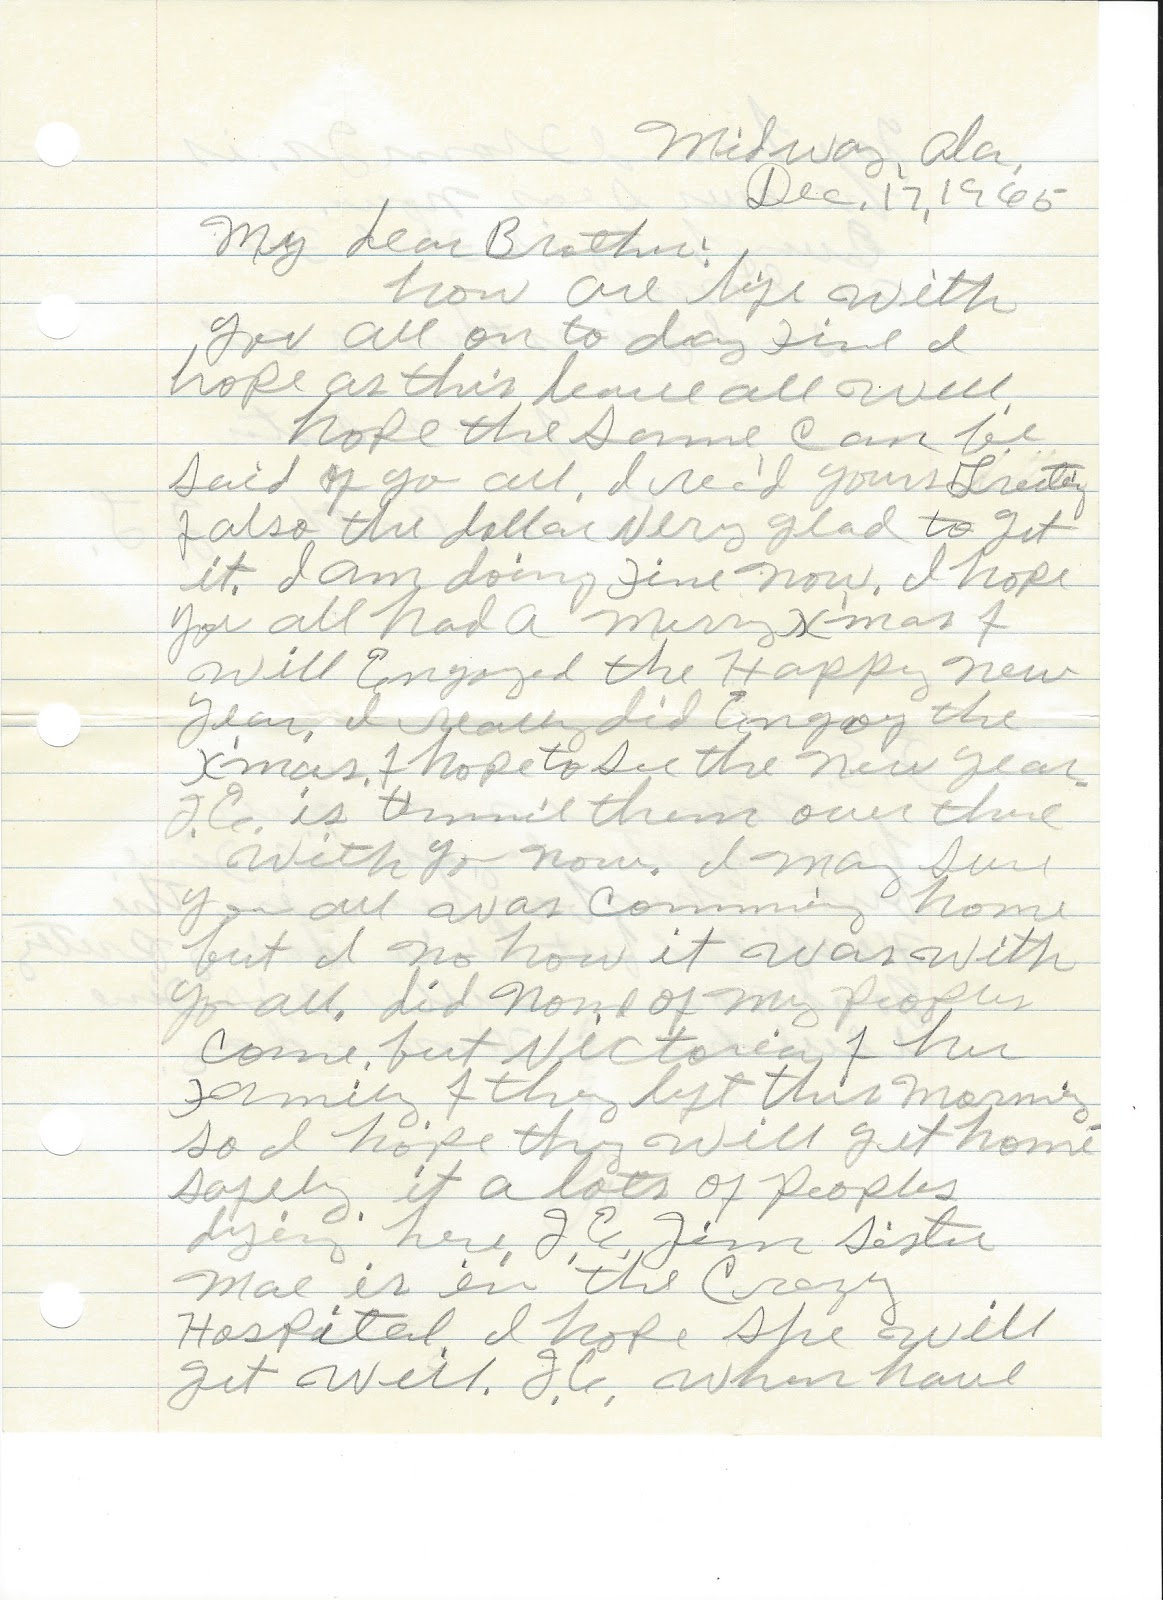 Midway, Ala,
Dec, 17, 1965
My dear Brother:
how are life with
you all on to day Fine I
hope as this leave all well.
hope the same can be
said of yo all. I rec'd yours
& also the dollar Very glad to get
it. I am doing Fine now. I hope
you all had a Merry X'mas &
will Engoyed the Happy New
Year. I really did Engoy the
X'mas. & hope to see the New Year.
J.C. is them over there
with yo now. I may sure
you all was Comming home
but I no how it was with
yo all. did None of my peoples
Come. but Victoria & her
Family & they left this Morning
so I hope they will get home
safely. it a lots of peoples
dying here. J.C. Jim Sister
Mae is in the Crazy
Hospital. I hope she will
get well. J.C. when have